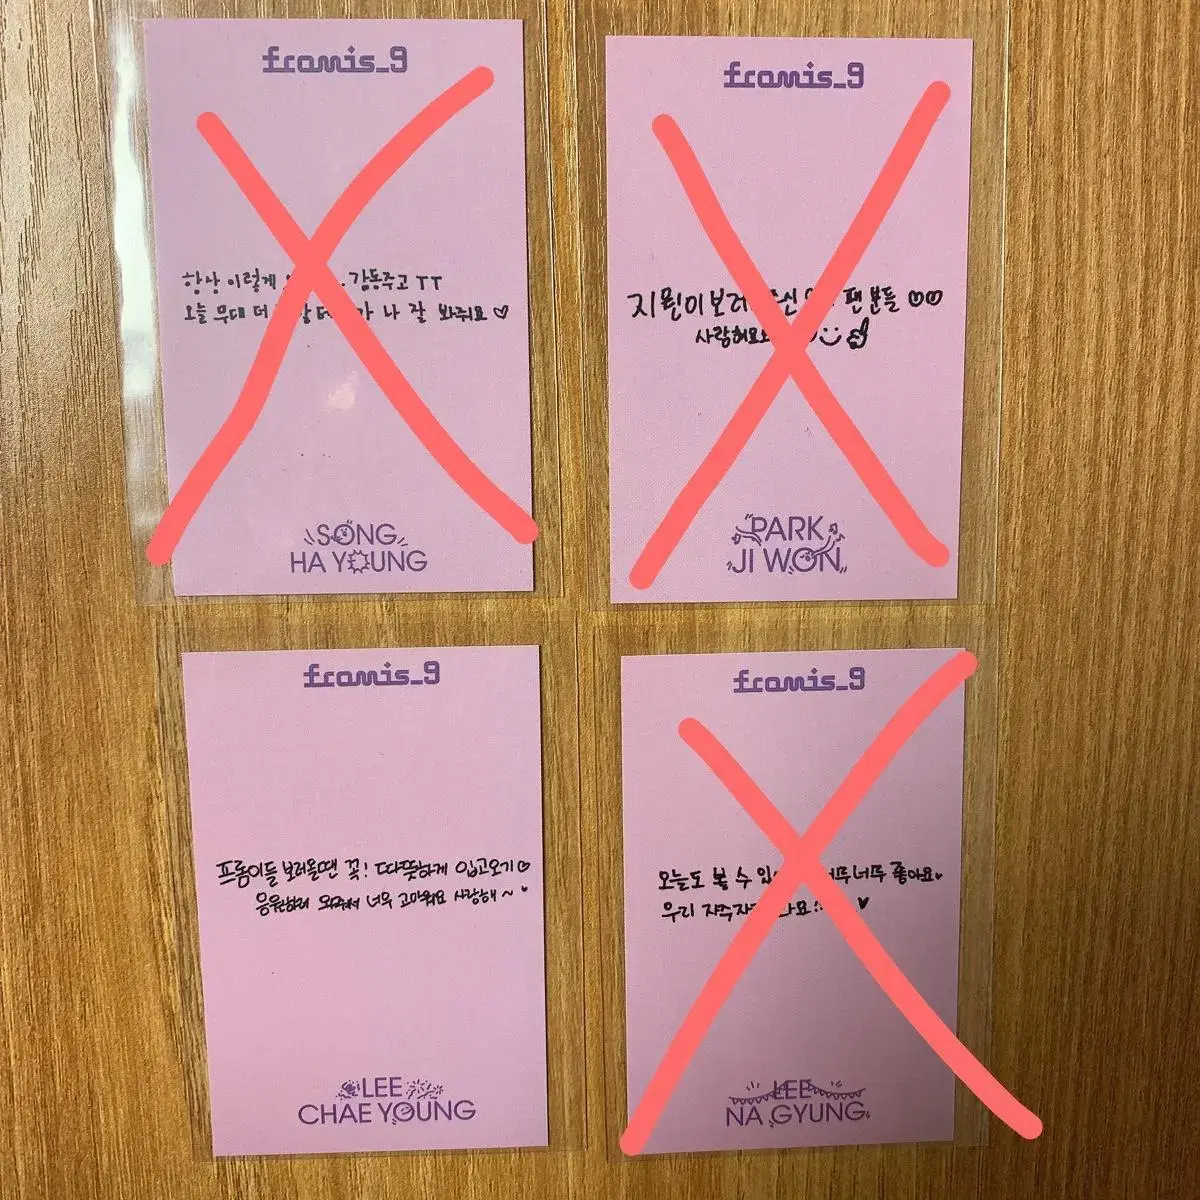 fromis_9
항상 이렇게 감동주고 TT
오늘 무대 더 나 잘 봐줘요♡
SONG
HA YOUNG
fromis_9
지원이 보러 팬분들
사랑해요
PARK
JI WON
fromis_9
프롬이들 보러올땐 꼭! 따뜻하게 입고오기♡
응원하러 와줘서 너무 고마워요 사랑해~
LEE
CHAE YOUNG
fromis_9
오늘도 볼 수 너무 좋아요
우리
LEE
NA GYUNG